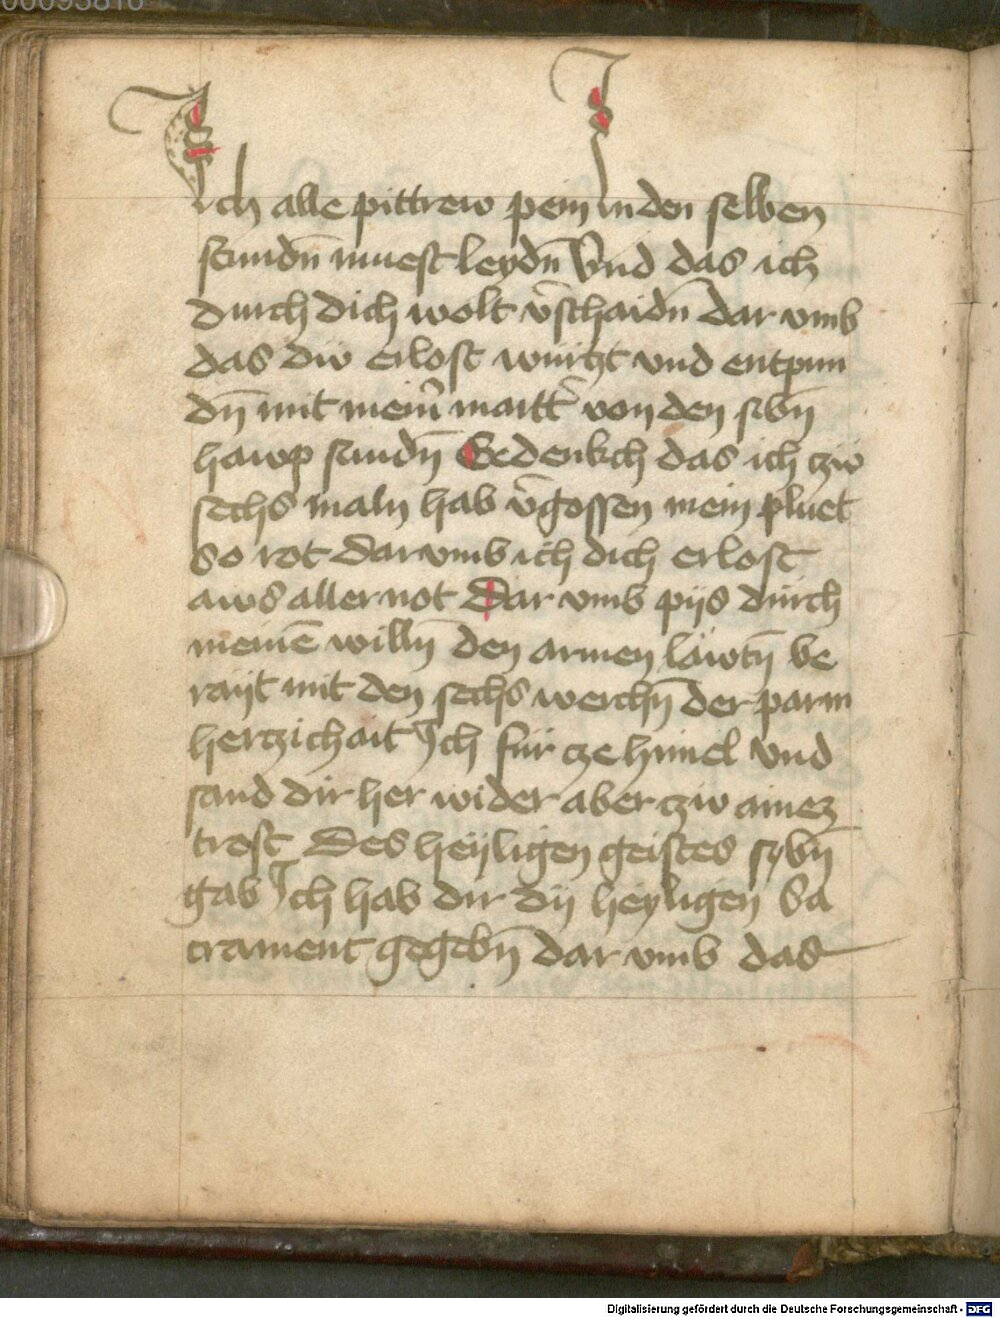 00093816
Ich alle pittrew pein in den selben
stundn̄ muest leydn̄ Vnd das ich
durch dich wolt v̄schaidn̄ dar vmb
das dw erlost wurtzt vnd entpun
dn̄ mit meim̄ martt̄ von den sibn̄
hawp sundn̄ Gedenkch das ich czw
sechs maln hab v̄gossen mein pluet
So rot Dar vmb ich dich erlost
aws aller not Dar vmb pijs durch
meinē willn̄ den armen läwtn̄ be
raijt mit den sechs werchn̄ der parm
herczichait Ich für cze himel vnd
sand dir her wider aber czw ainez
trost Des heijligen geistes sybn̄
gab Ich hab dir dij heyligen Sa
crament gegebn̄ dar vmb das
Digitalisierung gefördert durch die Deutsche Forschungsgemeinschaft - DFG